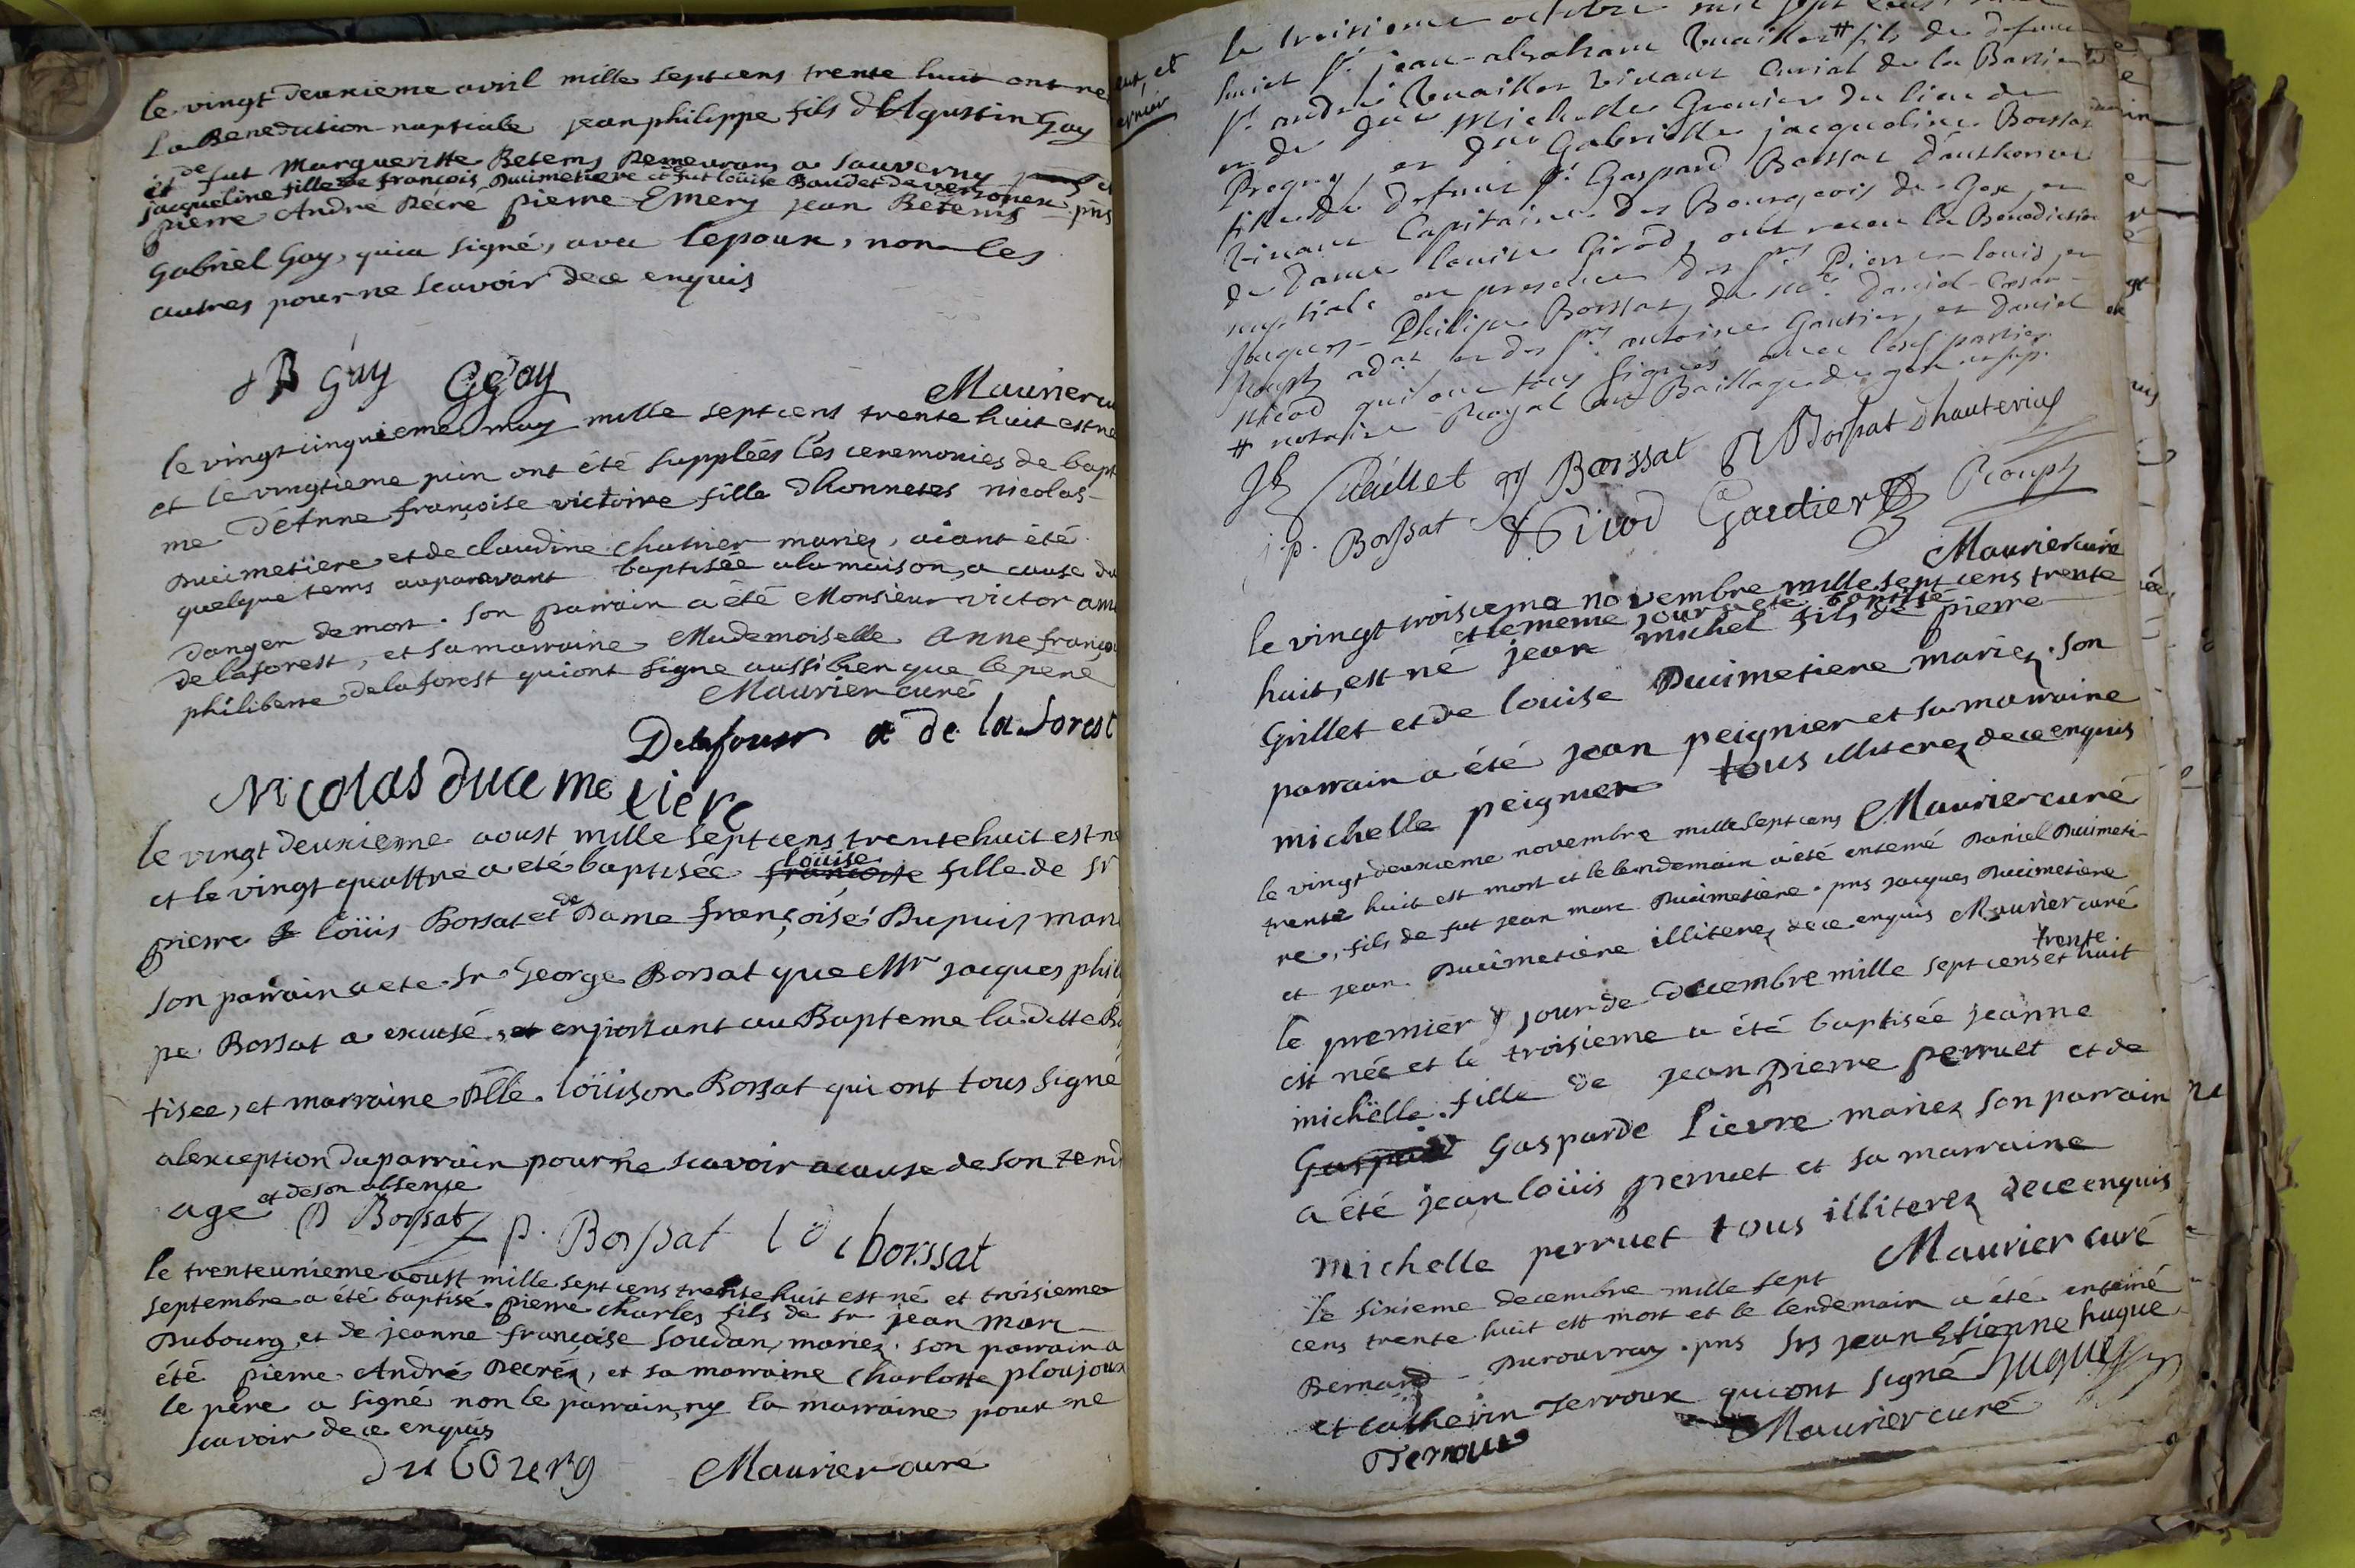 le vingt deuxieme avril mille septcens trente huit ont re
la Benediction nuptiale jean philippe fils d'Agustin Gay
et de fut Margueritte Betems demeurans a Sauverny et
jacqueline fille de françois Ducimetiere et fut loüise Baudet de versonex pns
pierre André Decré pierre Emery jean Betems
Gabriel Gay, quia signé, avec lepoux, non les
autres pour ne scavoir dece enquis
Gay GGay
Maurier cu
le vingt cinquieme may mille septcens trente huit est né
et le vingtieme juin ont été supplées les ceremonies de bapt
me d'Anne françoise victoire fille d'honnetes nicolas
Ducimetiere et de claudine chatrier mariez, aiant été
quelque tems auparavant baptisée ala maison, a cause du
danger de mort. son parrain a été Monsieur victor am
delaforest, et sa marraine Mademoiselle Anne françoi
philiberte delaforest qui ont signe aussi bien que le pere
Maurier curé
Delaforest a de la forest
Nicolas ducimetiere
le vingt deuxieme aoust mille septcens trente huit est né
et le vingt quattre a eté baptisée loüise françoise fille de sr
pierre loüis Borsat et de Dame françoise Dupuis marie
son parrain a ete sr George Borsat que Mr jacques phili
pe Borsat a excusé, et en portant au Bapteme la ditte Ba
tisee, et marraine Dlle loüison Borsat qui ont tous signé
alexception du parrain pour ne scavoir a cause de son tend
age et de son absense
P Borssat p. Borssat borssat
le trente unieme aoust mille septcens trente huit est né et troisieme
septembre a été baptisé pierre charles fils de sr jean Marc
Dubourg, et de jeanne françoise Soudan, mariez. son parrain a
été pierre André Decréz, et sa marraine Charlotte ploujoux
le père a signé non le parrain, ny la marraine pour ne
scavoir de ce enquis
duBOurg Maurier curé
le troisieme octobre mil sept cens
huict Sr. jean-abraham # fils de defunc
Sr. andré vivant Curial de la
et de Michelle Grenier du lieu de
Pregny, et Dlle Gabrielle jacqueline Borssat
fille de defunt Sr. Gaspard Borssat d'authorive
vivant Capitaine des Bourgeois de Gex, et
de Dame louise Girod, ont receu la Benediction
nuptiale en presence des Srs Pierre-louis, et
jacques-Philipe Borssat, de Daniel-Cesar
et des Srs antoine Gautier, et Daniel
Nicod qui ont tous signés avec les parties
# notaire Royal au Baillage de gex
Borssat Borssat dhauterive
j. p. Borssat Nicod Gautier
Maurier curé
le vingt troisieme novembre mille septcens trente
huit, est né et le meme jour a été baptisé jean michel fils de pierre
Grillet et de louise Ducimetiere mariez. son
parrain a été jean peignier et sa marraine
michelle peignier tous illiterez de ce enquis
Maurier curé
le vingt deuxieme novembre mille septcens
trente huit est mort et le lendemain a été enterré Daniel Ducimeti-
re, fils de fut jean marc Ducimetiere. pns jacques Ducimetiere
et jean Ducimetiere illiterez de ce enquis Maurier curé
le premier jour de decembre mille septcens et trente huit
est née et le troisieme a été baptisée jeanne
michëlle fille de jean pierre perruet et de
Gaspard Gasparde Lievre mariez son parrain
a été jean loüis perruet et sa marraine
michelle perruet tous illiterez de ce enquis
Maurier curé
le sixieme decembre mille sept
cens trente huit est mort et le lendemain a été enterré
Bernard Durouvray. pns Srs jean Etienne hugue
et catherin Terroux qui ont signé hugues
Terroux Maurier curé